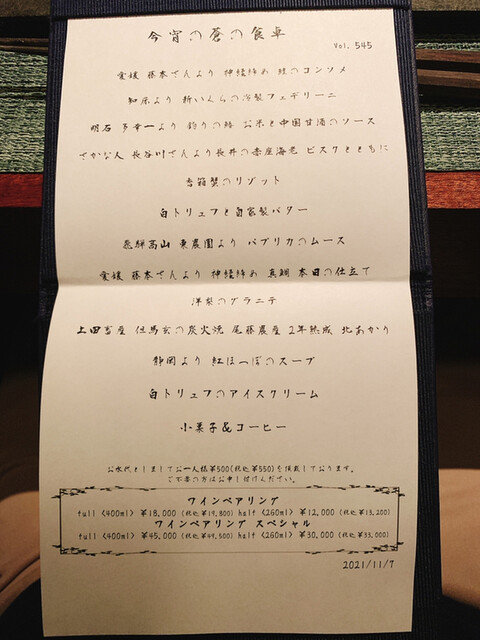 今宵の蒼の食卓
Vol. 545
愛媛 藤本さんより 神経締め 鯵のコンソメ
知床より 新いくらの冷製フェデリーニ
明石 多幸一より 釣りの鰆 お米と中国甘酒のソース
さかな人 長谷川さんより長井の赤座海老 ビスクとともに
香箱蟹のリゾット
白トリュフと自家製バター
飛騨高山 東農園より パプリカのムース
愛媛 藤本さんより 神経締め 真鯛 本日の仕立て
洋梨のグラニテ
上田畜産 但馬玄の炭火焼 尾藤農産 2年熟成 北あかり
静岡より 紅ほっぺのスープ
白トリュフのアイスクリーム
小菓子&コーヒー
お水代としましてお一人様¥500(税込¥550)を頂戴しております。
ご不要の方はお申し付けください。
ワインペアリング
full 〈400ml〉 ¥18,000 (税込 ¥19,800) half 〈260ml〉 ¥12,000 (税込 ¥13,200)
ワインペアリング スペシャル
full 〈400ml〉 ¥45,000 (税込 ¥49,500) half 〈260ml〉 ¥30,000 (税込 ¥33,000)
2021/11/7